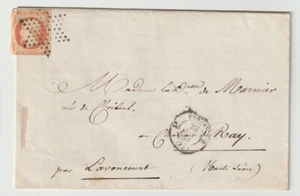 Madame la D.sse de Marmier
née de
au Château de Ray
par Lavoncourt (Haute Saône)